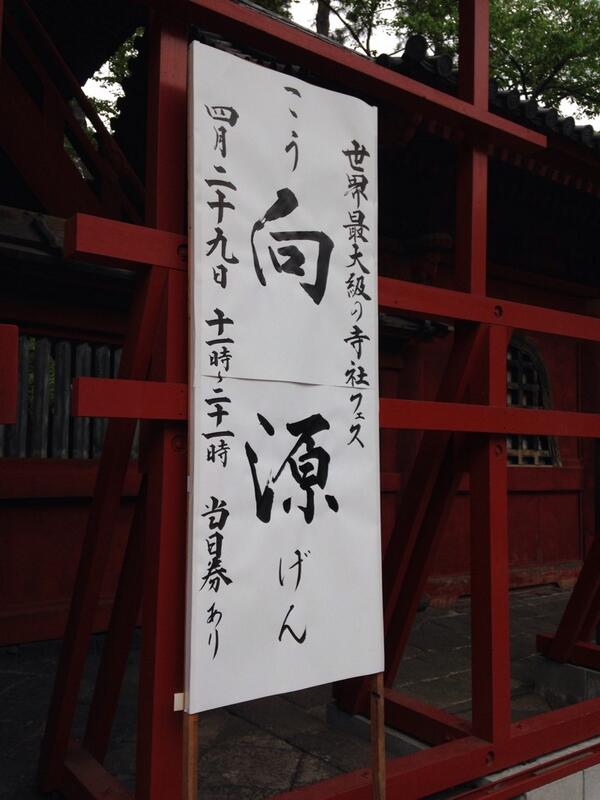 世界最大級の寺社フェス
こう
向源
げん
四月二十九日 十一時~二十一時 当日券あり